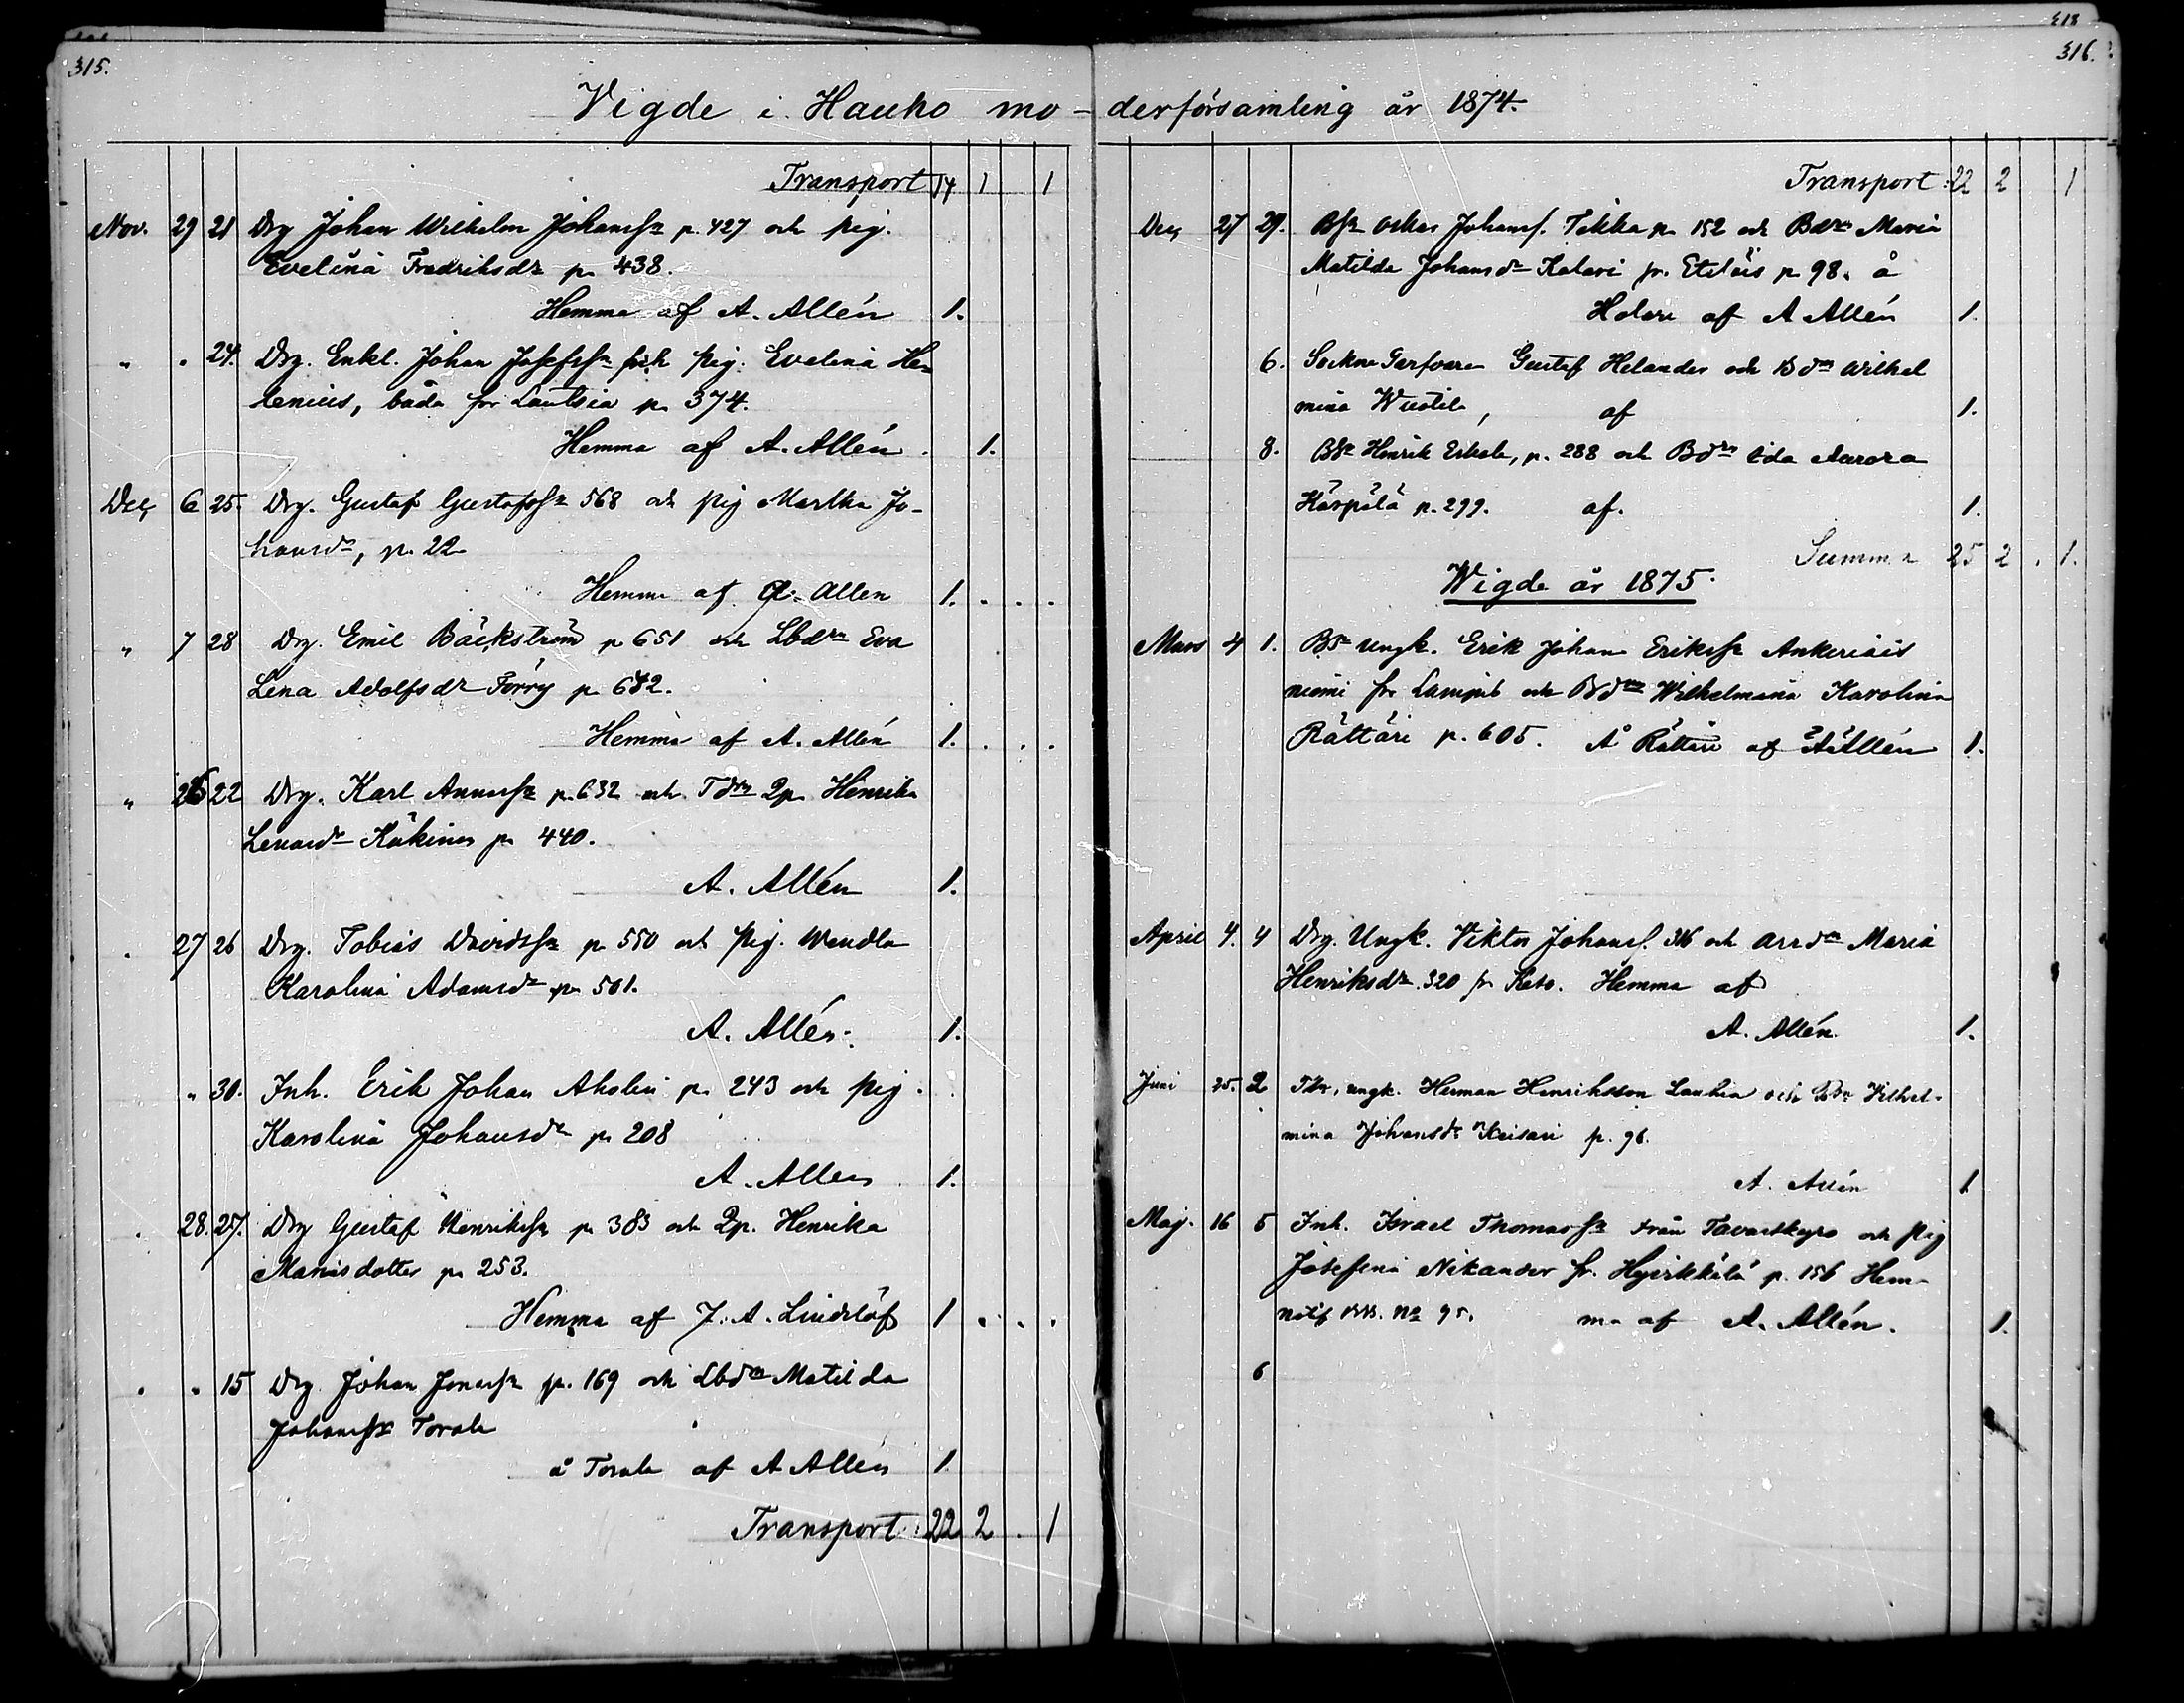 315.
Vigde i Hauho mo-
Transport 14 1 1
Nov. 29 21 Drg Johan Wilhelm Johanss:n p. 427 och pig.
Evelina Fredriksd:r p. 438.
Hemma af A. Allén 1.
" " 24. Drg. Enkl. Johan Josefss:n och pig. Evelina He-
lenius, båda fr Lautsia p. 374.
Hemma af A. Allén. 1.
Dec 6 25. Drg. Gustaf Gustafss:n 568 och pig Martha Jo-
hansd:r, p. 22
Hemma af A. Allén 1. . . .
" 7 28 Drg. Emil Bäckström p 651 och Lbd:rn Eva
Lena Adolfsd:r Törry p. 642.
Hemma af A. Allén 1. . . .
" 26 22 Drg. Karl p. 632 och T d:rn Qp. Henrika
Kökinen p. 440.
A. Allén 1.
" 27 26 Drg. Tobias Davidss:n p. 550 och pig. Wendla
Karolina Adamsd:r p. 501.
A. Allén. 1.
" 30. Inh. Erik Johan Aholin p. 243 och pig.
Karolina Johansd:r p. 208
A. Allén 1.
" 28. 27. Drg Gustaf Henrikss:n p. 383 och Qp. Henrika
Mariasdotter p. 253.
Hemma af J. A. Lindelöf 1 . . .
" " 15 Drg. Johan Jonass:n p. 169 och Lbd:rn Matilda
Torala
å Torala af A Allén 1.
Transport: 22 2 . 1
318
316.
derförsamling år 1874.
Transport: 22 2 1
Dec 27 29. Bs:n Oskar Johanss. Tikka p. 152 och Bd:rn Maria
Matilda Johansd:r fr. Etelais p. 98. å
af A Allén 1.
6. Sockne Garfvaren Gustaf Helander och Bd:rn Wilhel
mina , af 1.
8. Bs:n Henrik Eskola, p. 288 och Bd:rn Ida Aurora
Kärpälä p. 299. af. 1.
Summa 25 2 . 1.
Wigde år 1875.
Mars 4 1. Bs:n Ungk. Erik Johan Erikss:n Ankeriais
niemi fr. Lampis och Bd:rn Wilhelmina Karolina
Rättäri p. 605. Å Rättäri af A Allén 1.
April 4. 4 Drg. Ungk. Viktor Johanss. 316 och Maria
Henriksd:r 320 fr Keso. Hemma af
A. Allén. 1.
Juni 25. 2 ungk. Herman Henriksson Lauhia och Vilhel-
mina Johansd:r Keisari p. 96.
A. Allén 1
Maj. 16 5 Inh. Israel Thomass:n från Tavastkyro och pig
Josefina Nikander fr. p. 156 Hem-
N:o 95. ma af A. Allén. 1.
6